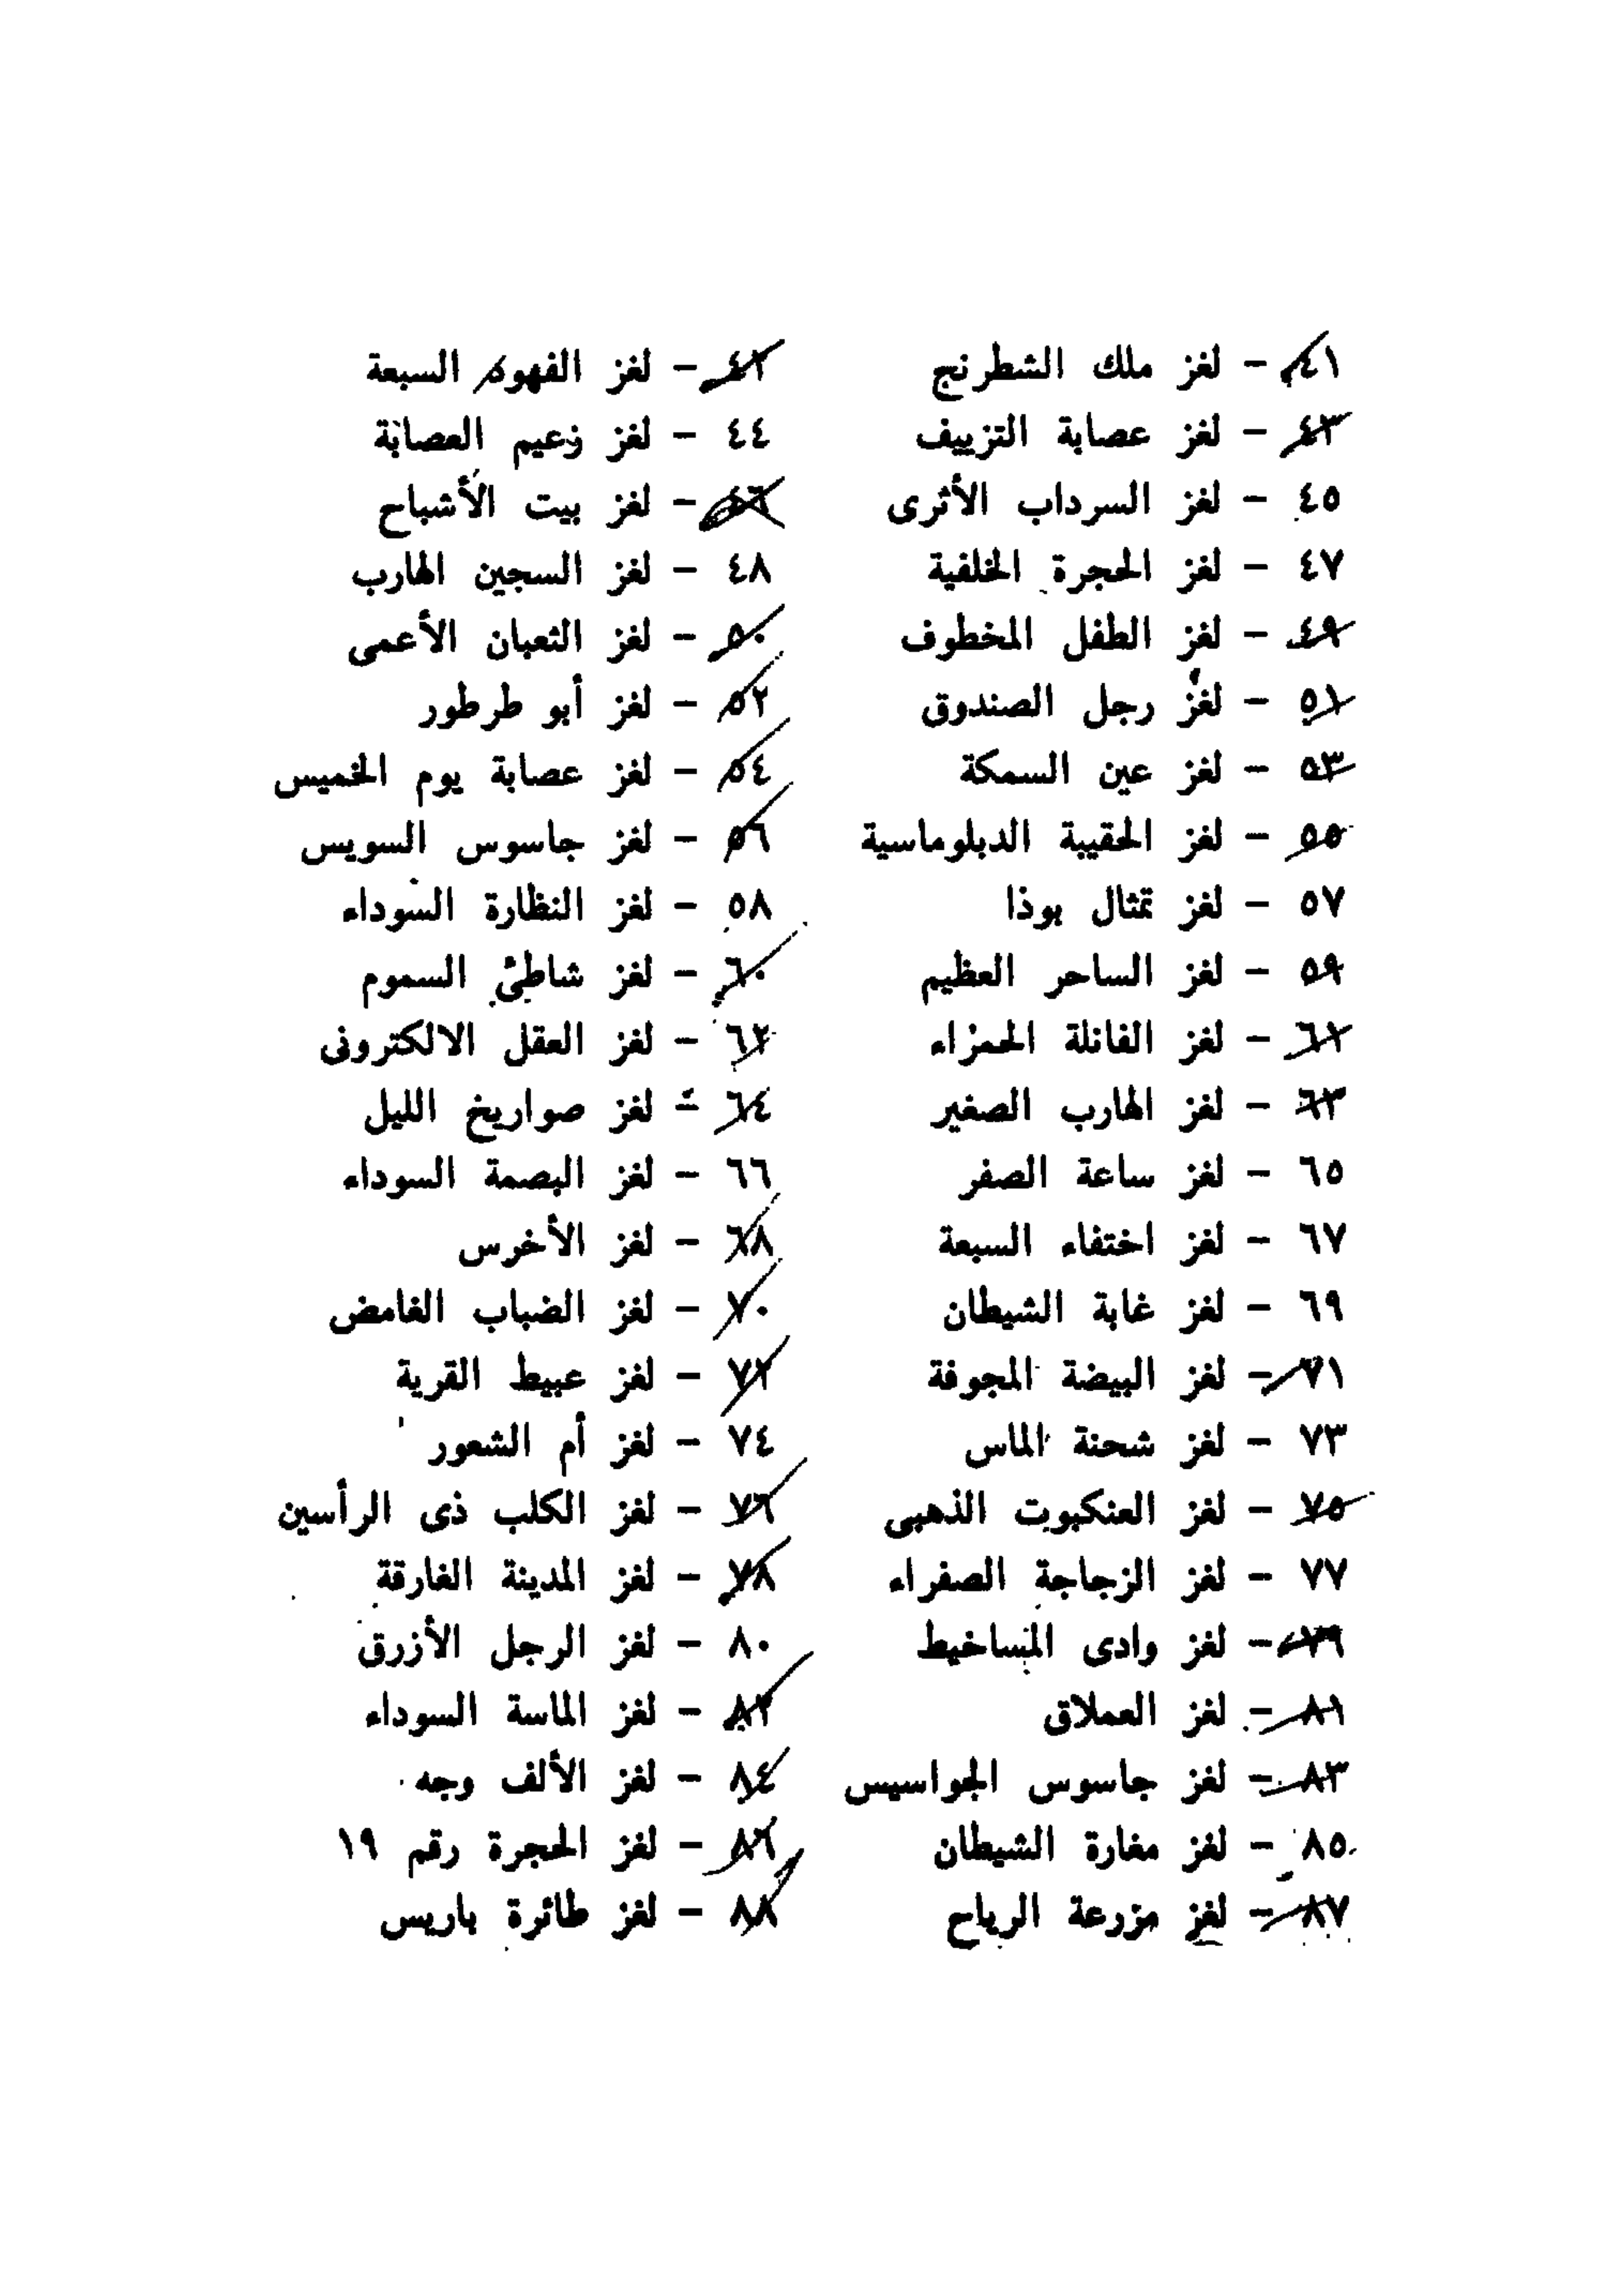 ٤١ - لغز ملك الشطرنج
٤٢ - لغز الفهود السبعة
٤٣ - لغز عصابة التزييف
٤٤ - لغز زعيم العصابة
٤٥ - لغز السرداب الأثرى
٤٦ - لغز بيت الأشباح
٤٧ - لغز الحجرة الخلفية
٤٨ - لغز السجين الهارب
٤٩ - لغز الطفل المخطوف
٥٠ - لغز الثعبان الأعمى
٥١ - لغز رجل الصندوق
٥٢ - لغز أبو طرطور
٥٣ - لغز عين السمكة
٥٤ - لغز عصابة يوم الخميس
٥٥ - لغز الحقيبة الدبلوماسية
٥٦ - لغز جاسوس السويس
٥٧ - لغز تمثال بوذا
٥٨ - لغز النظارة السوداء
٥٩ - لغز الساحر العظيم
٦٠ - لغز شاطئ السموم
٦١ - لغز الفانلة الحمراء
٦٢ - لغز العقل الالكترونى
٦٣ - لغز الهارب الصغير
٦٤ - لغز صواريخ الليل
٦٥ - لغز ساعة الصفر
٦٦ - لغز البصمة السوداء
٦٧ - لغز اختفاء السبعة
٦٨ - لغز الأخرس
٦٩ - لغز غابة الشيطان
٧٠ - لغز الضباب الغامض
٧١ - لغز البيضة المجوفة
٧٢ - لغز عبيط القرية
٧٣ - لغز شحنة الماس
٧٤ - لغز أم الشعور
٧٥ - لغز العنكبوت الذهبى
٧٦ - لغز الكلب ذى الرأسين
٧٧ - لغز الزجاجة الصفراء
٧٨ - لغز المدينة الغارقة
٧٩ - لغز وادى المساخيط
٨٠ - لغز الرجل الأزرق
٨١ - لغز العملاق
٨٢ - لغز الماسة السوداء
٨٣ - لغز جاسوس الجواسيس
٨٤ - لغز الألف وجه
٨٥ - لغز مغارة الشيطان
٨٦ - لغز الحجرة رقم ١٩
٨٧ - لغز مزرعة الرياح
٨٨ - لغز طائرة باريس